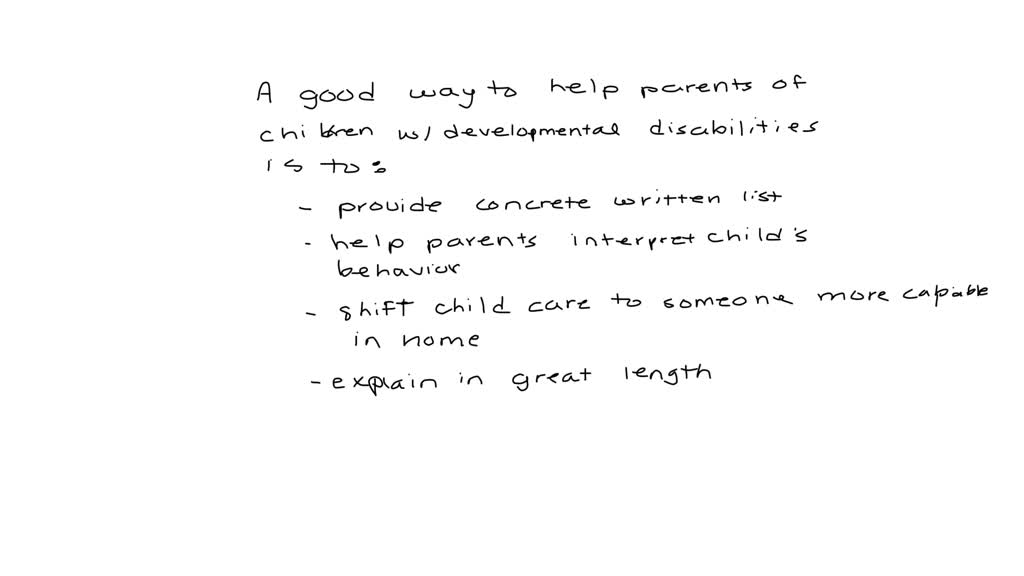 A good way to help parents of
children w/ developmental disabilities
is to:
- provide concrete written list
- help parents interpret child's
behavior
- shift child care to someone more capable
in home
- explain in great length